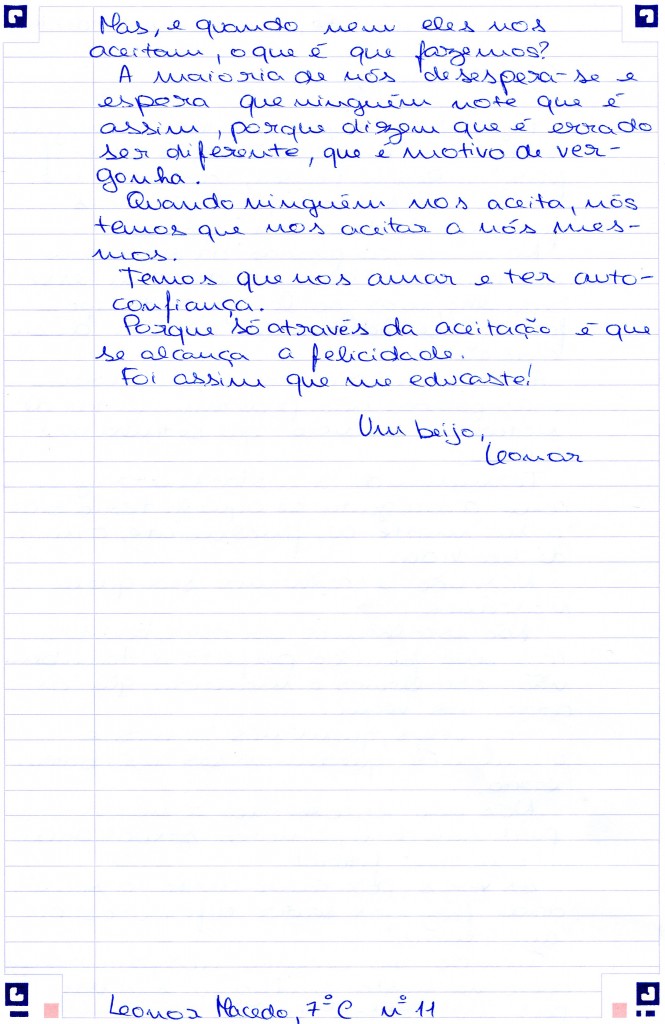 Mas, e quando nem eles nos
aceitam, o que é que fazemos?
A maioria de nós desespera-se e
espera que ninguém note que é
assim, porque dizem que é errado
ser diferente, que é motivo de ver-
gonha.
Quando ninguém nos aceita, nós
temos que nos aceitar a nós mes-
mos.
Temos que nos amar e ter auto-
confiança.
Porque só através da aceitação é que
se alcança a felicidade.
Foi assim que me educaste!
Um beijo,
Leonor
Leonor Macedo, 7º C nº 11